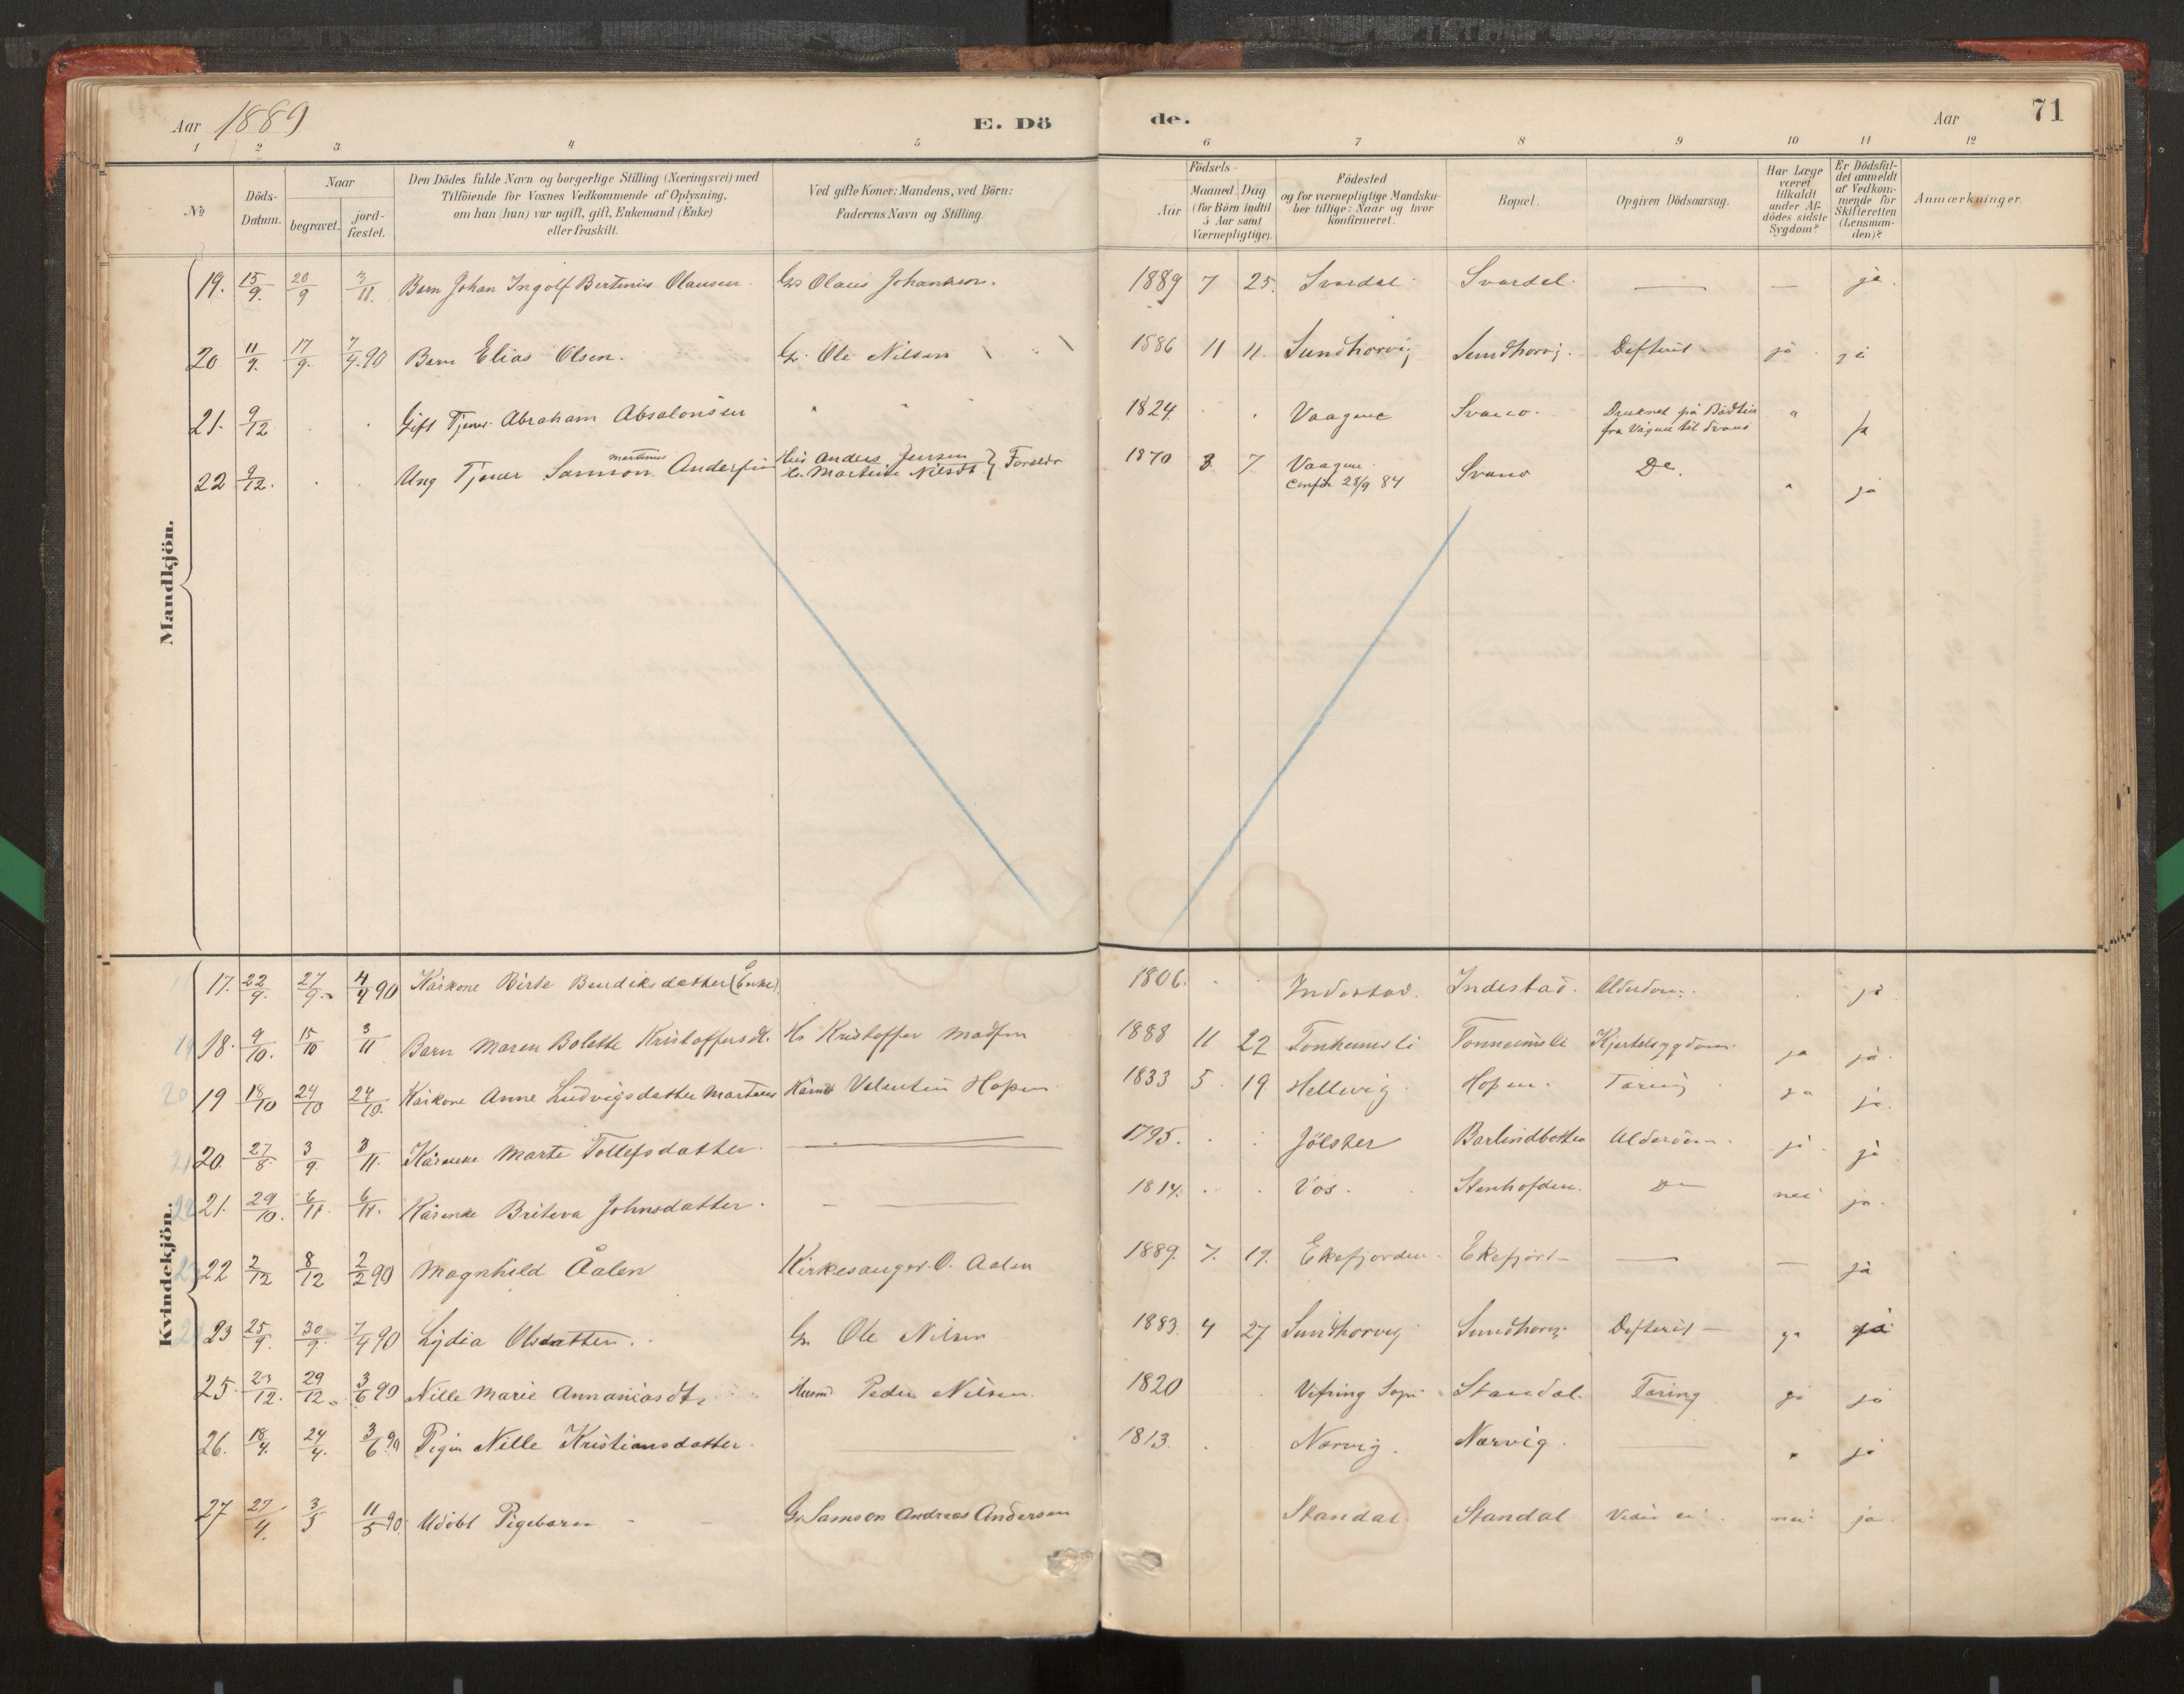 Aar 1889 E. Dö de. Aar 71
1 2 3 4 5 6 7 8 9 10 11 12
№
Döds-Datum.
Naar
begravet.
jord-fæstet.
Den Dödes fulde Navn og borgerlige Stilling (Næringsvei) med
Tilföiende for Voxnes Vedkommende af Oplysning,
om han (hun) var ugift, gift, Enkemand (Enke)
eller fraskilt.
Ved gifte Koner: Mandens, ved Börn:
Faderens Navn og Stilling.
Födsels-
Aar
Maaned. Dag
(for Börn indtil
5 Aar samt
Værnepligtige).
Födested
og for værnepligtige Mandska-
ber tillige: Naar og hvor
konfirmeret.
Bopæl.
Opgiven Dödsaarsag.
Har Læge
været
tilkaldt
under Af-
dödes sidste
Sygdom?
Er Dödsfal-
det anmeldt
af Vedkom-
mende for
Skifteretten
(Lensman-
den)?
Anmærkninger.
Mandkjön.
19. 15/9. 20/9 3/11. Barn Johan Ingolf Bertinius Olausen. Gr Olaus Johannesen. 1889 7 25. Svardal Svardal. — — ja.
20 11/9. 17/9. 7/4.90 Barn Elias Olsen. Gr. Ole Nilsen 1886 11 11. Sundhorvig Sundhorvig. Defterit ja ja
21. 9/12 Gift Tjener Abraham Absalonsen " " 1824. Vaagene Svanø. Druknet på Bådtur
fra Vågene til Svanø " ja
22 9/12. Ung Tjener Samson martinus Andersen Hus Anders Jensen
Martine Nilsdt } Foreldr 1870 3 7 Vaagene
Confir 28/9 84 Svanø Do. " ja
Kvindekjön.
17. 22/9. 27/9. 4/4 90 Kårkone Birte Bendiksdatter (Enke). 1806. Indestad. Indestad. Alderdom. ja
18. 9/10. 15/10 3/11 Barn Maren Bolette Kristoffersdt. Hs Kristoffer Madsen 1888 11 22 Tonheimsli Tonneimsli Kjertelsygdom ja ja.
19 18/10 24/10 24/10. Kårkone Anne Ludvigsdatter Martens Kårmd Valentin Hopen 1833 5. 19 Hellevig. Hopen. Tæring ja ja.
20. 27/8. 3/9. 3/11. Kårenke Marte Tollefsdatter. — 1795. Jölster Barlindbotten Alderdom. ja. ja
21. 29/10. 6/11. 6/11. Kårenke Briteva Johnsdatter. — 1814. Vos. Stenhofden. Do nei ja.
22 2/12 8/12 2/2 90 Magnhild Åalen Kirkesanger O. Aalen 1889. 7. 17. Eksfjorden Eksfjord — — ja
23 25/9. 30/9. 7/4 90 Lydia Olsdatter. Gr. Ole Nilsen 1883. 4 27 Sundhorvig Sundhorvig Defterit — ja ja
25. 23/12. 29/12. 3/6 90 Nille Marie Annaniasdt. Husmd Peder Nilsen. 1820 Vefring Standal. Tæring ja ja
26. 18/4. 24/4. 3/6 90 Pigen Nille Kristiansdatter. — 1813. Nærvig. Nærvig. — " ja
27 27/4. 3/5 11/5 90. Udöbt Pigebarn Gr. Samson Andreas Andersen Standal. Standal Vides ei. nei. ja